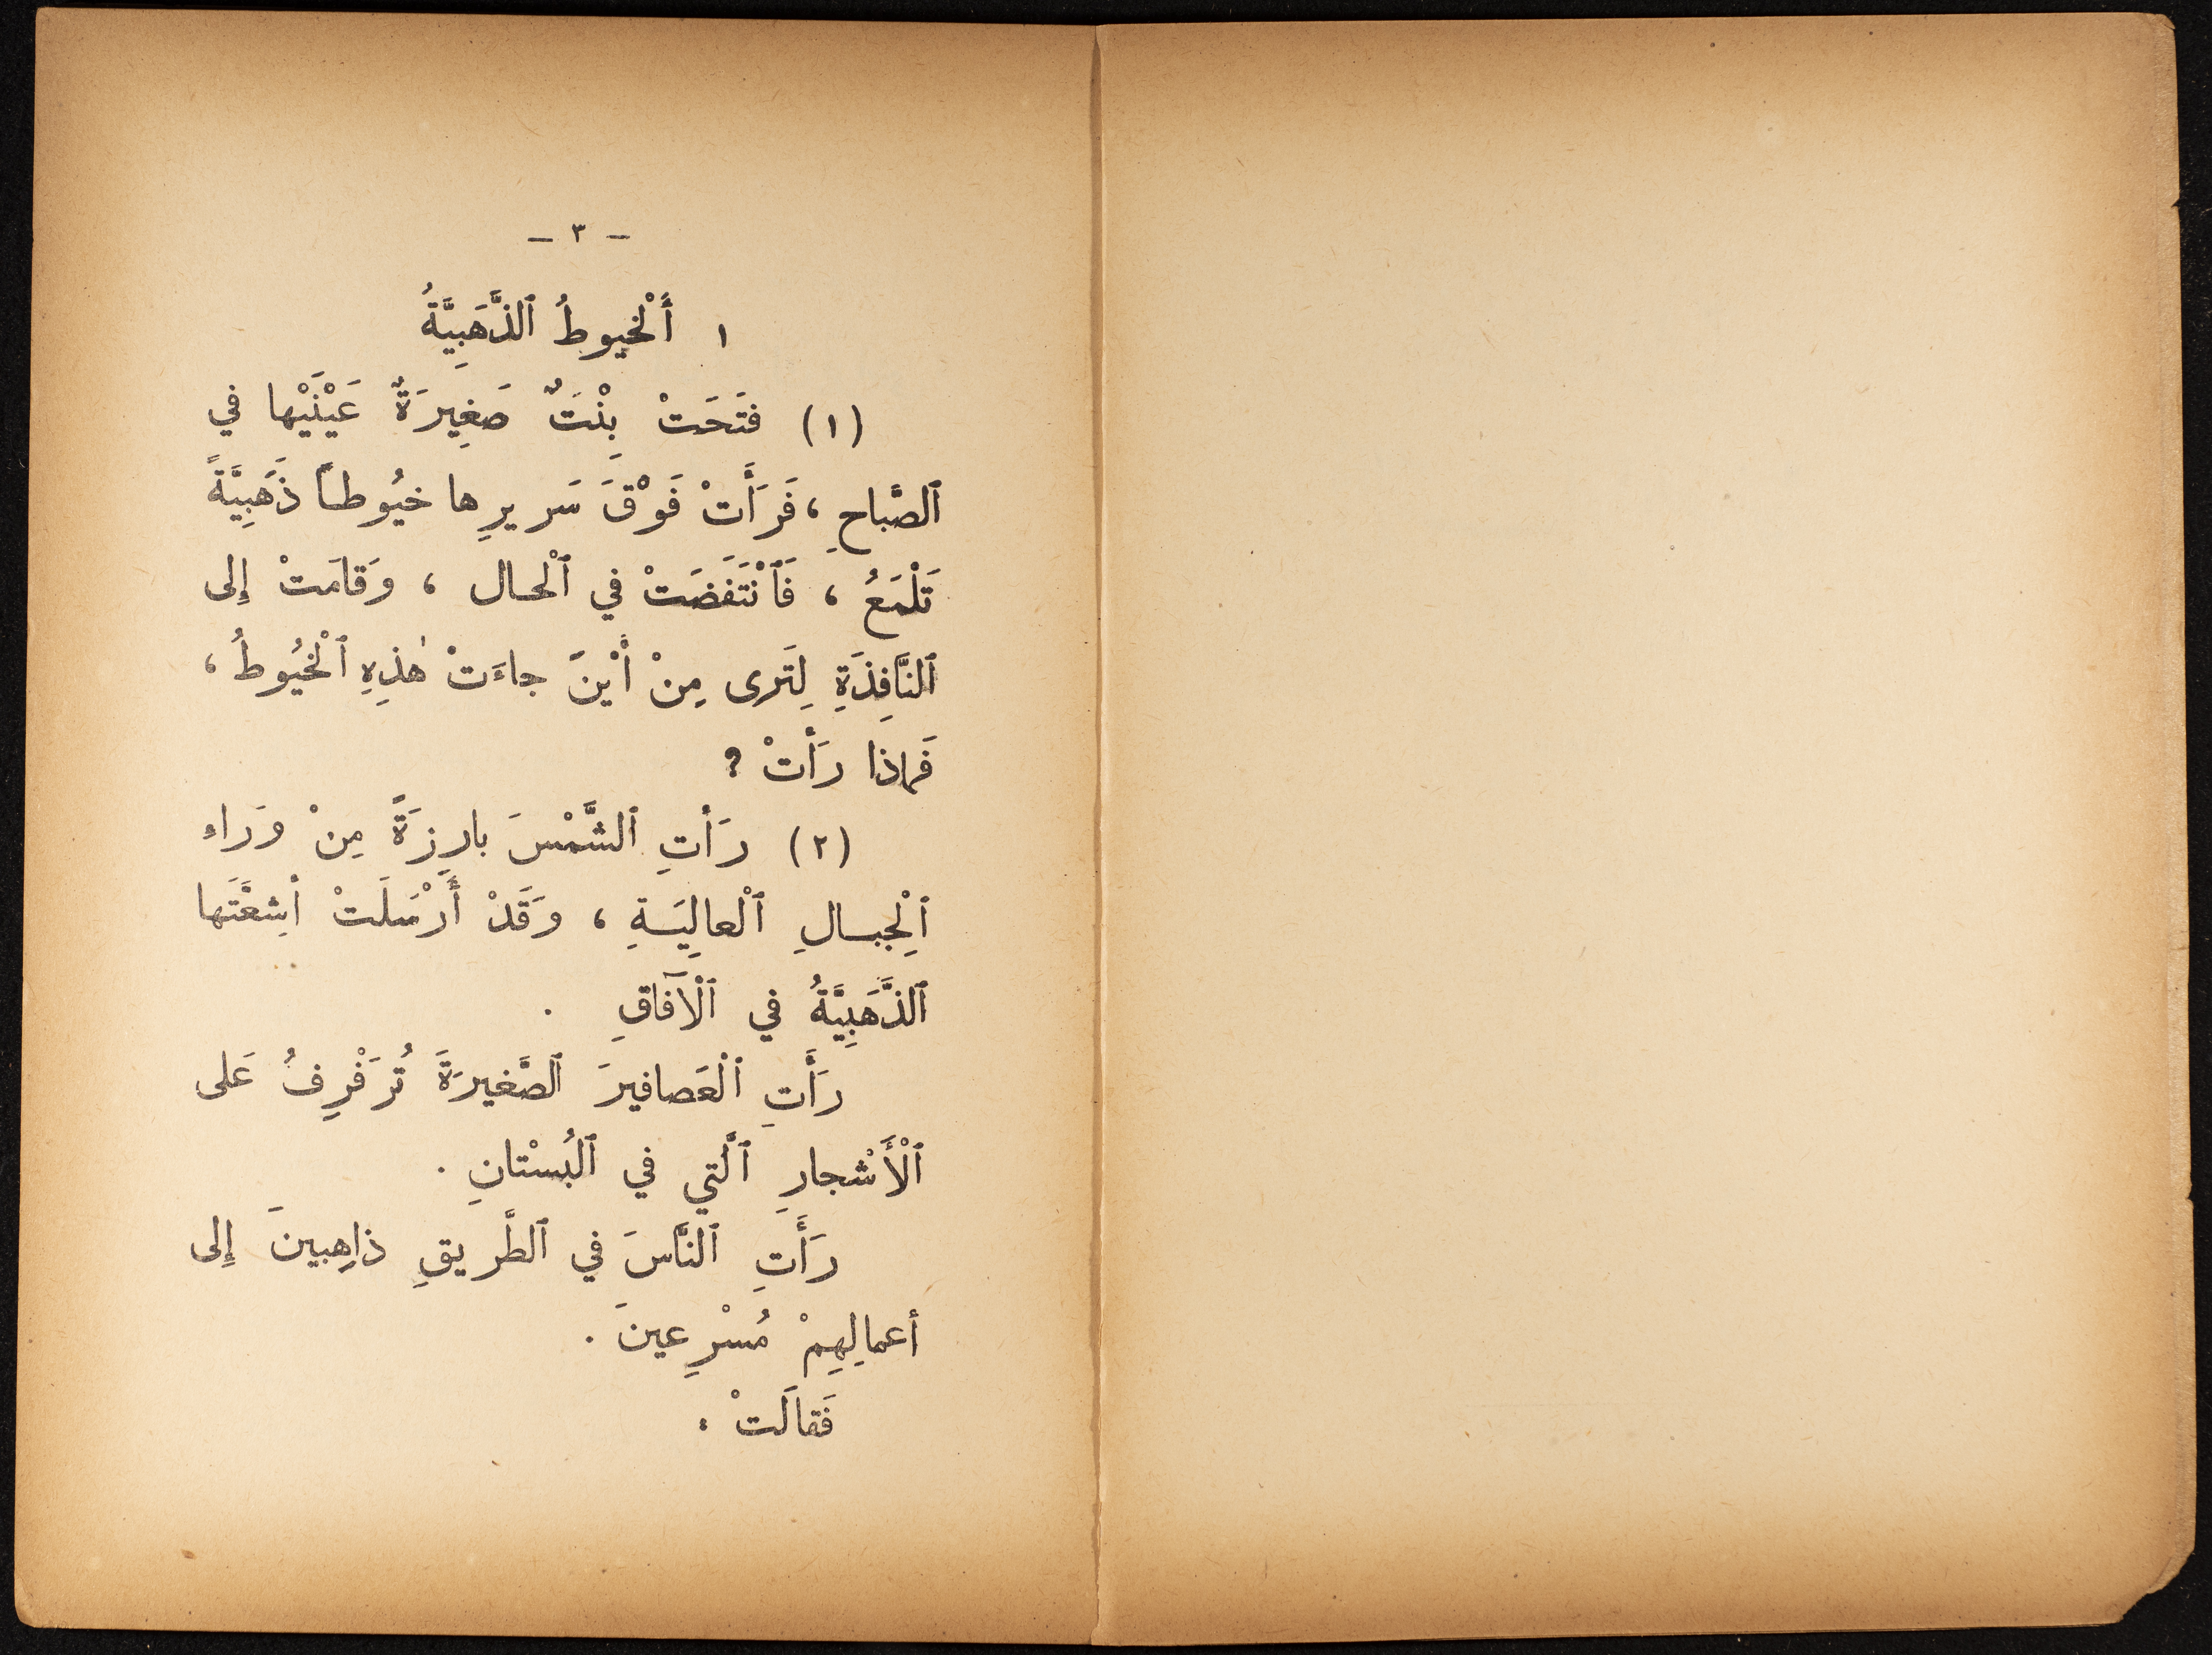 – ٣ –
١ أَلْخيوطُ ٱلذَّهَبِيَّةُ
(١) فتَحَتْ بِنْتٌ صَغِيرَةٌ عَيْنَيْها في
ٱلصَّباحِ ، فَرَأَتْ فَوْقَ سَريرِها خيُوطاً ذَهَبِيَّةً
تَلْمَعُ ، فَٱنْتَفَضَتْ في ٱلْحال ، وَقامَتْ إِلى
ٱلنَّافِذَةِ لِتَرى مِنْ أَيْنَ جاءَتْ هٰذِهِ ٱلْخيُوطُ ،
فَماذا رَأَتْ ?
(٢) رَأَتِ ٱلشَّمْسَ بارِزَةً مِنْ وَراءِ
ٱلْجِبالِ ٱلْعالِيَةِ ، وَقَدْ أَرْسَلَتْ أَشِعَّتَها
ٱلذَّهَبِيَّةُ في ٱلْآفاقِ .
رَأَتِ ٱلْعَصافيرَ ٱلصَّغيرَةَ تُرَفْرِفُ عَلى
ٱلْأَشْجارِ ٱلَّتي في ٱلبُسْتانِ .
رَأَتِ ٱلنَّاسَ في ٱلطَّريقِ ذاهِبينَ إِلى
أعمالِهِمْ مُسْرِعينَ .
فَقالَتْ :